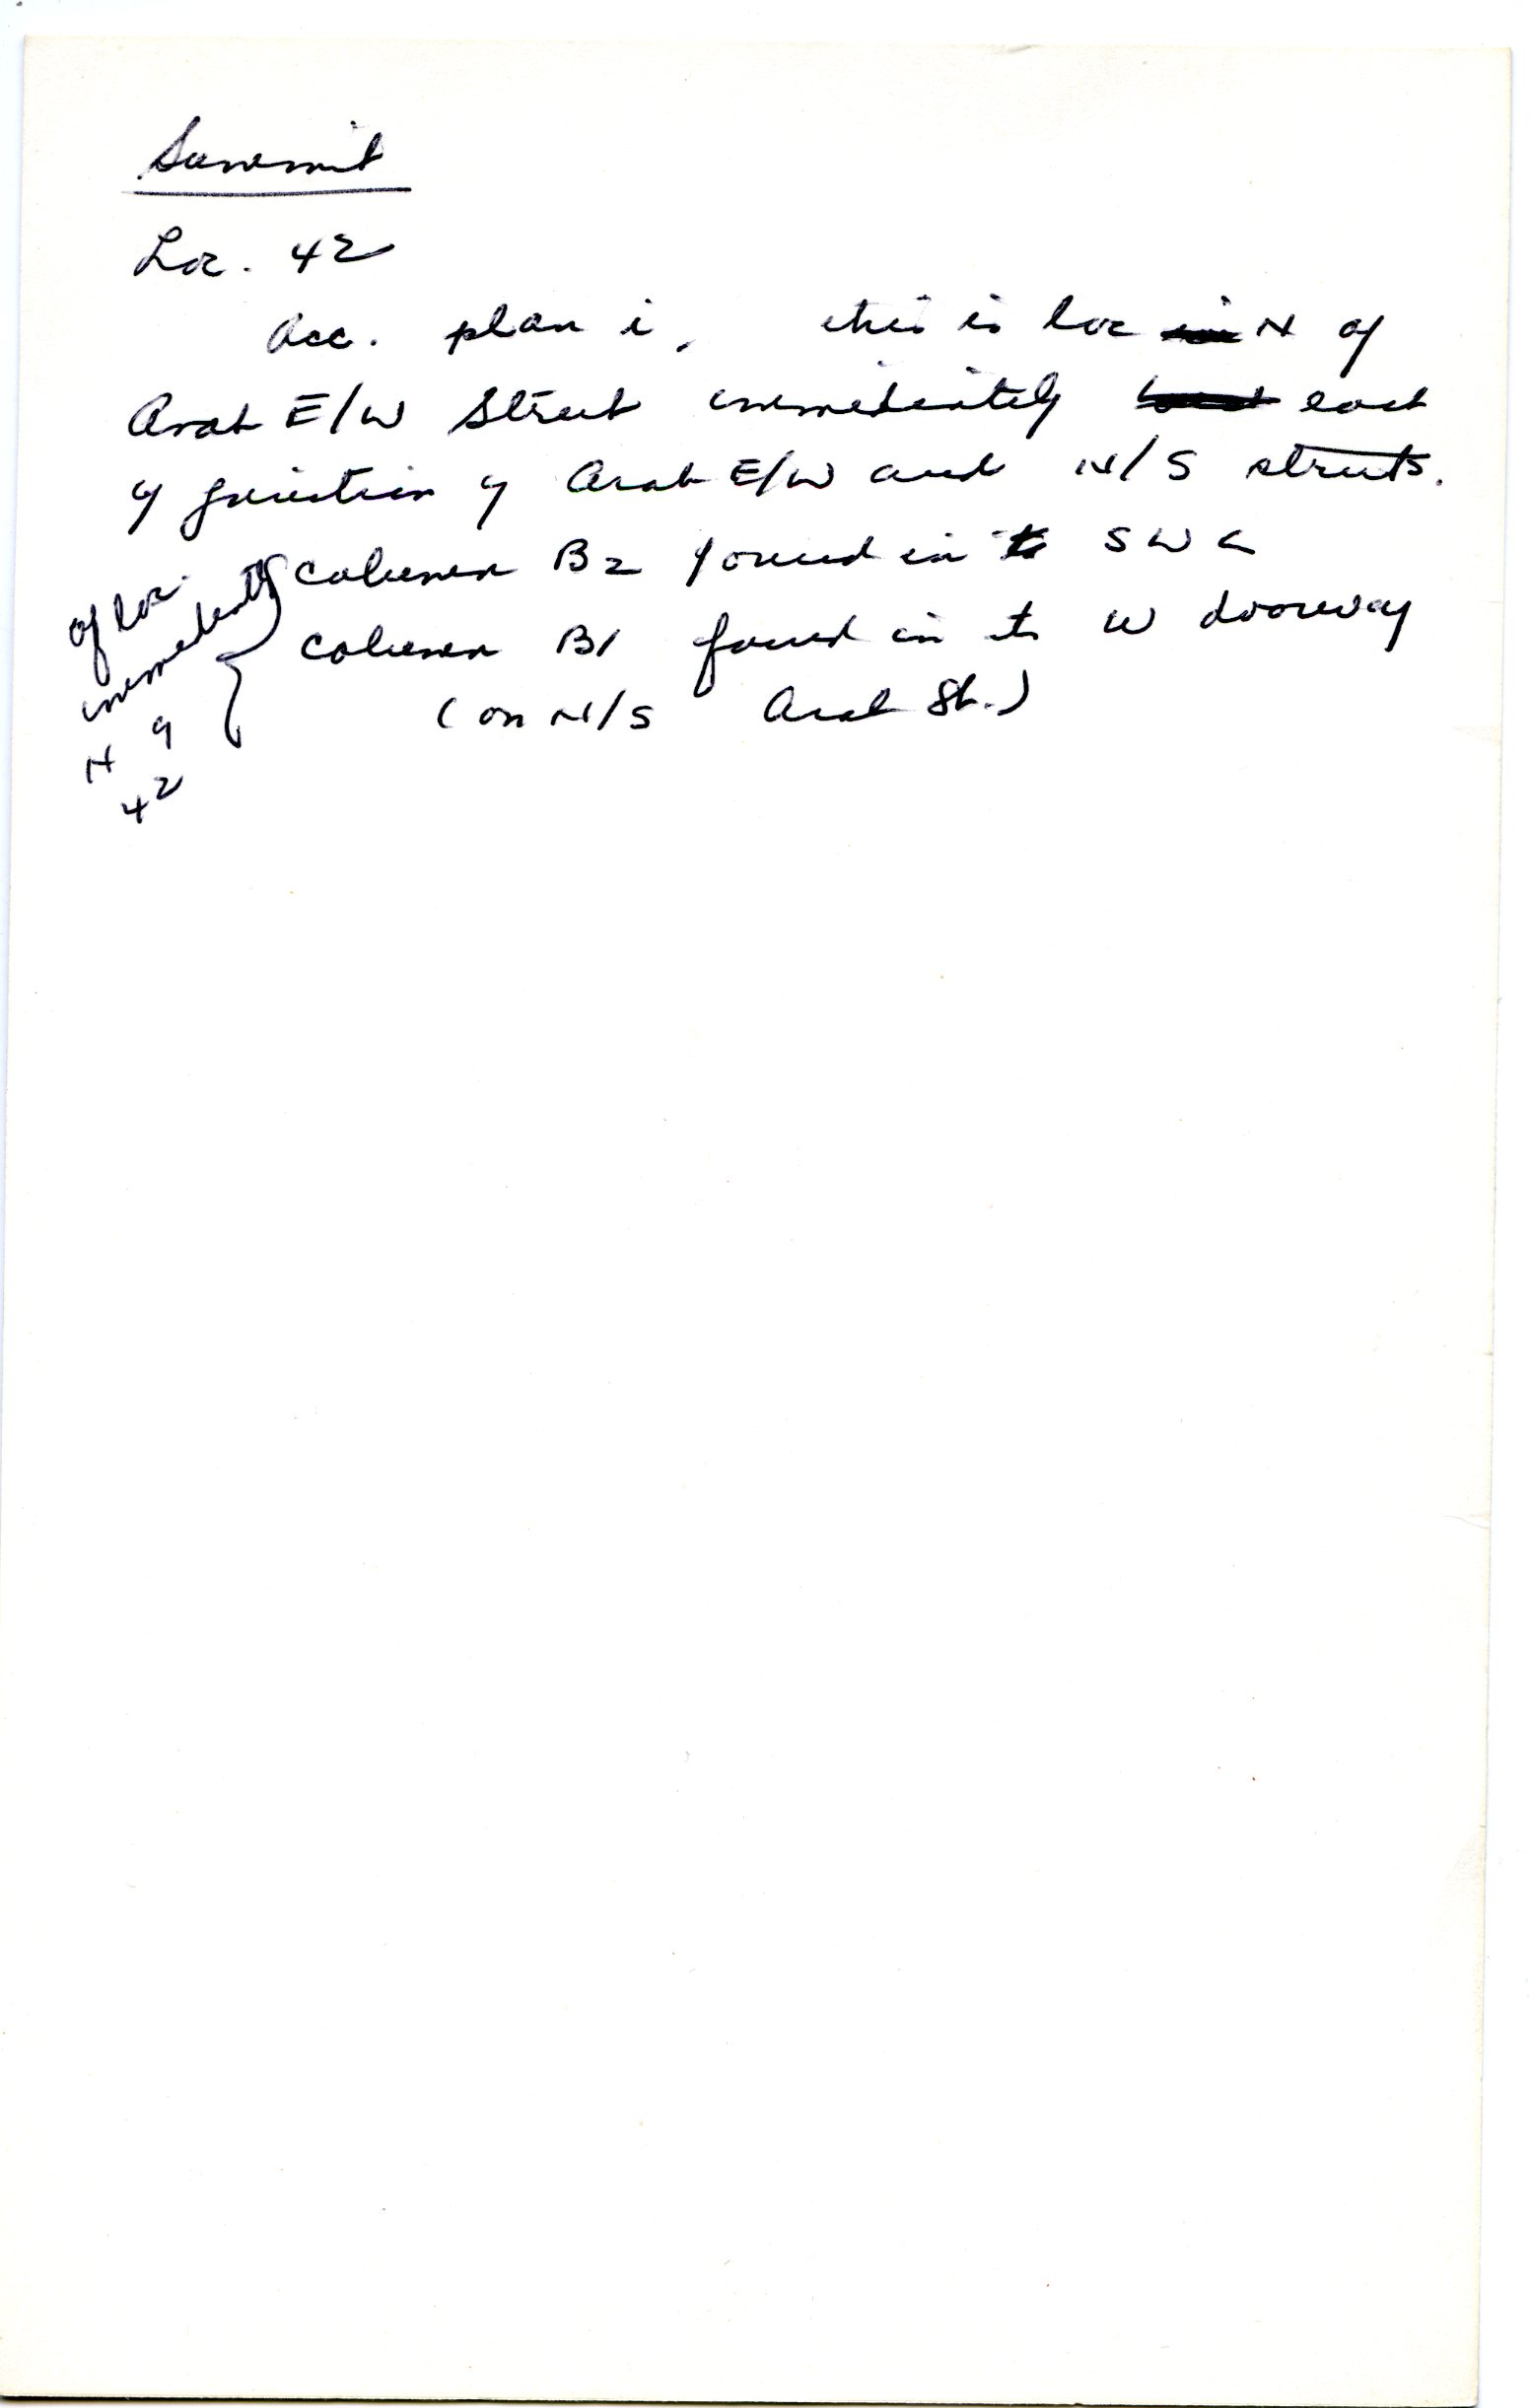 Summit
Loc. 42
Acc. plan i, this is loc N of
Arab E/W Street immediately east
of junction of Arab E/W and N/S streets.
column B2 found in its SWC
column B1 found in its W doorway
(on N/S Arab St.)
of loc.
immediately
N of
42